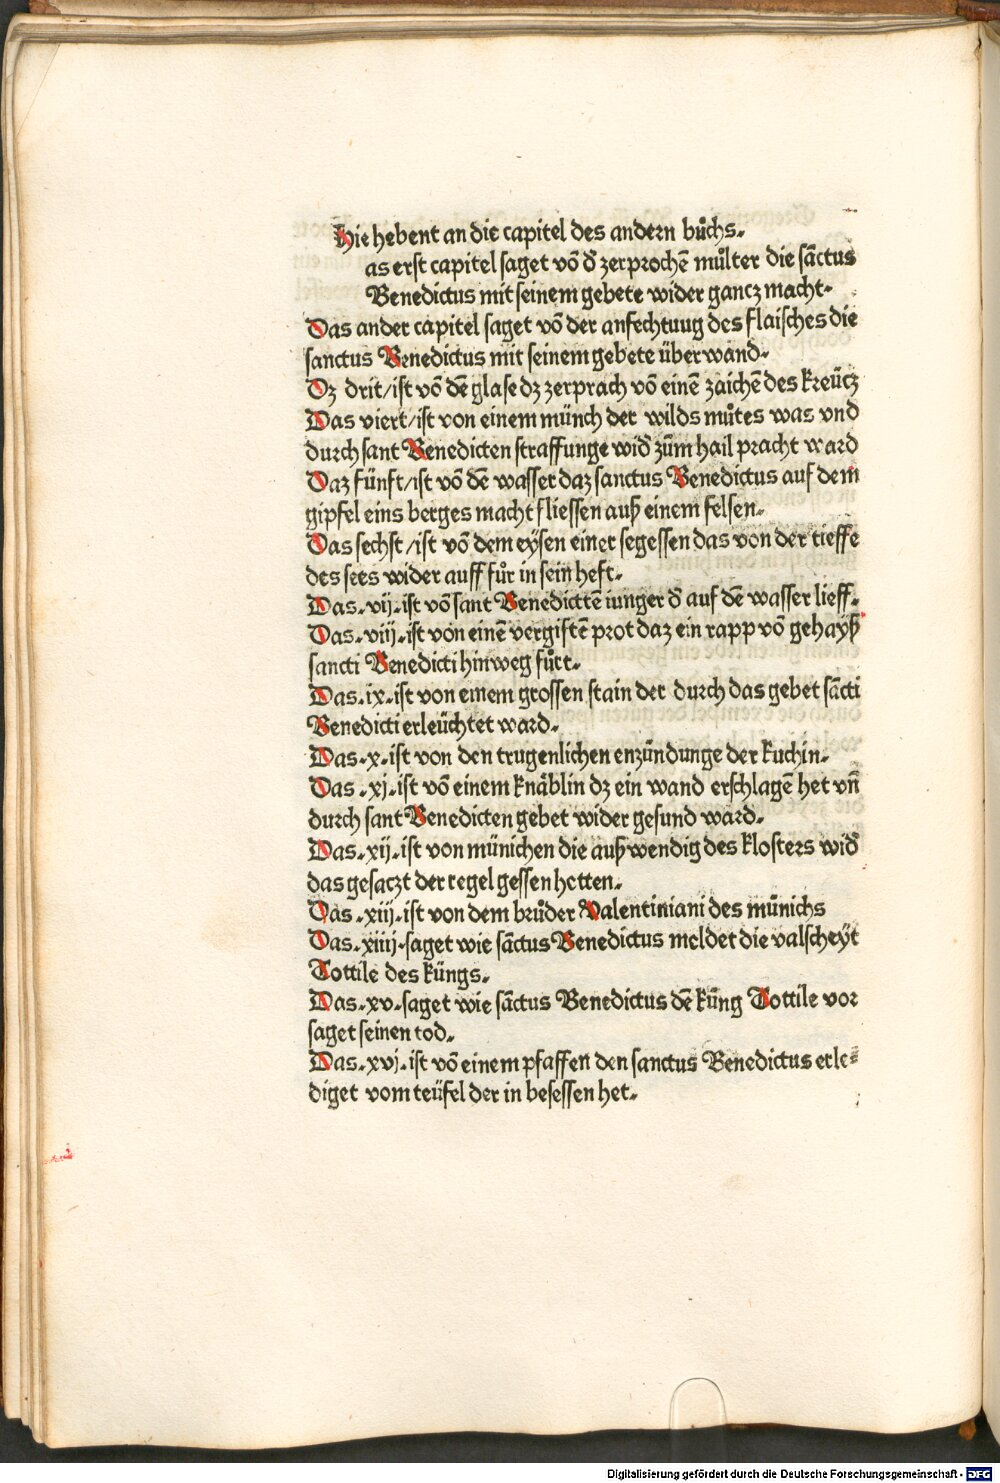 Hie hebent an die capitel des andern bůchs.
as erst capitel saget võ đ zerprochẽ můlter die sãctus
Benedictus mit seinem gebete wider gancz macht.
Das ander capitel saget võ der anfechtuug des flaisches die
sanctus Benedictus mit seinem gebete überwand.
Dz drit/ist võ dẽ glase dz zerprach võ einẽ zaichẽ des kreücz
Das viert/ist von einem münch der wilds můtes was vnd
durch sant Benedicten straffunge widđ zům hail pracht ward
Daz fünft/ist võ dẽ wasser daz sanctus Benedictus auf dem
gipfel eins berges macht fliessen auß einem felsen.
Das sechst/ist võ dem eysen einer segessen das von der tieffe
des sees wider auff fůr in sein heft.
Das.vij.ist võ sant Benedictẽ iunger đ auf dẽ wasser lieff.
Das.viij.ist von einẽ vergiftẽ prot daz ein rapp võ gehayß
sancti Benedicti hinweg fůrt.
Das.ix.ist von einem grossen stain der durch das gebet sãcti
Benedicti erleüchtet ward.
Das.x.ist von den trugenlichen enzündunge der kuchin.
Das.xj.ist võ einem knäblin dz ein wand erschlagẽ het vñ
durch sant Benedicten gebet wider gesund ward.
Das.xij.ist von münichen die außwendig des klosters widđ
das gesaczt der regel gessen hetten.
Das.xiij.ist von dem brůder Valentiniani des münichs
Das.xiiij.saget wie sãctus Benedictus meldet die valscheyt
Tottile des küngs.
Das.xv.saget wie sãctus Benedictus dẽ küng Tottile vor
saget seinen tod.
Das.xvj.ist võ einem pfaffen den sanctus Benedictus erle-
diget vom teüfel der in besessen het.
Digitalisierung gefördert durch die Deutsche Forschungsgemeinschaft - DFG